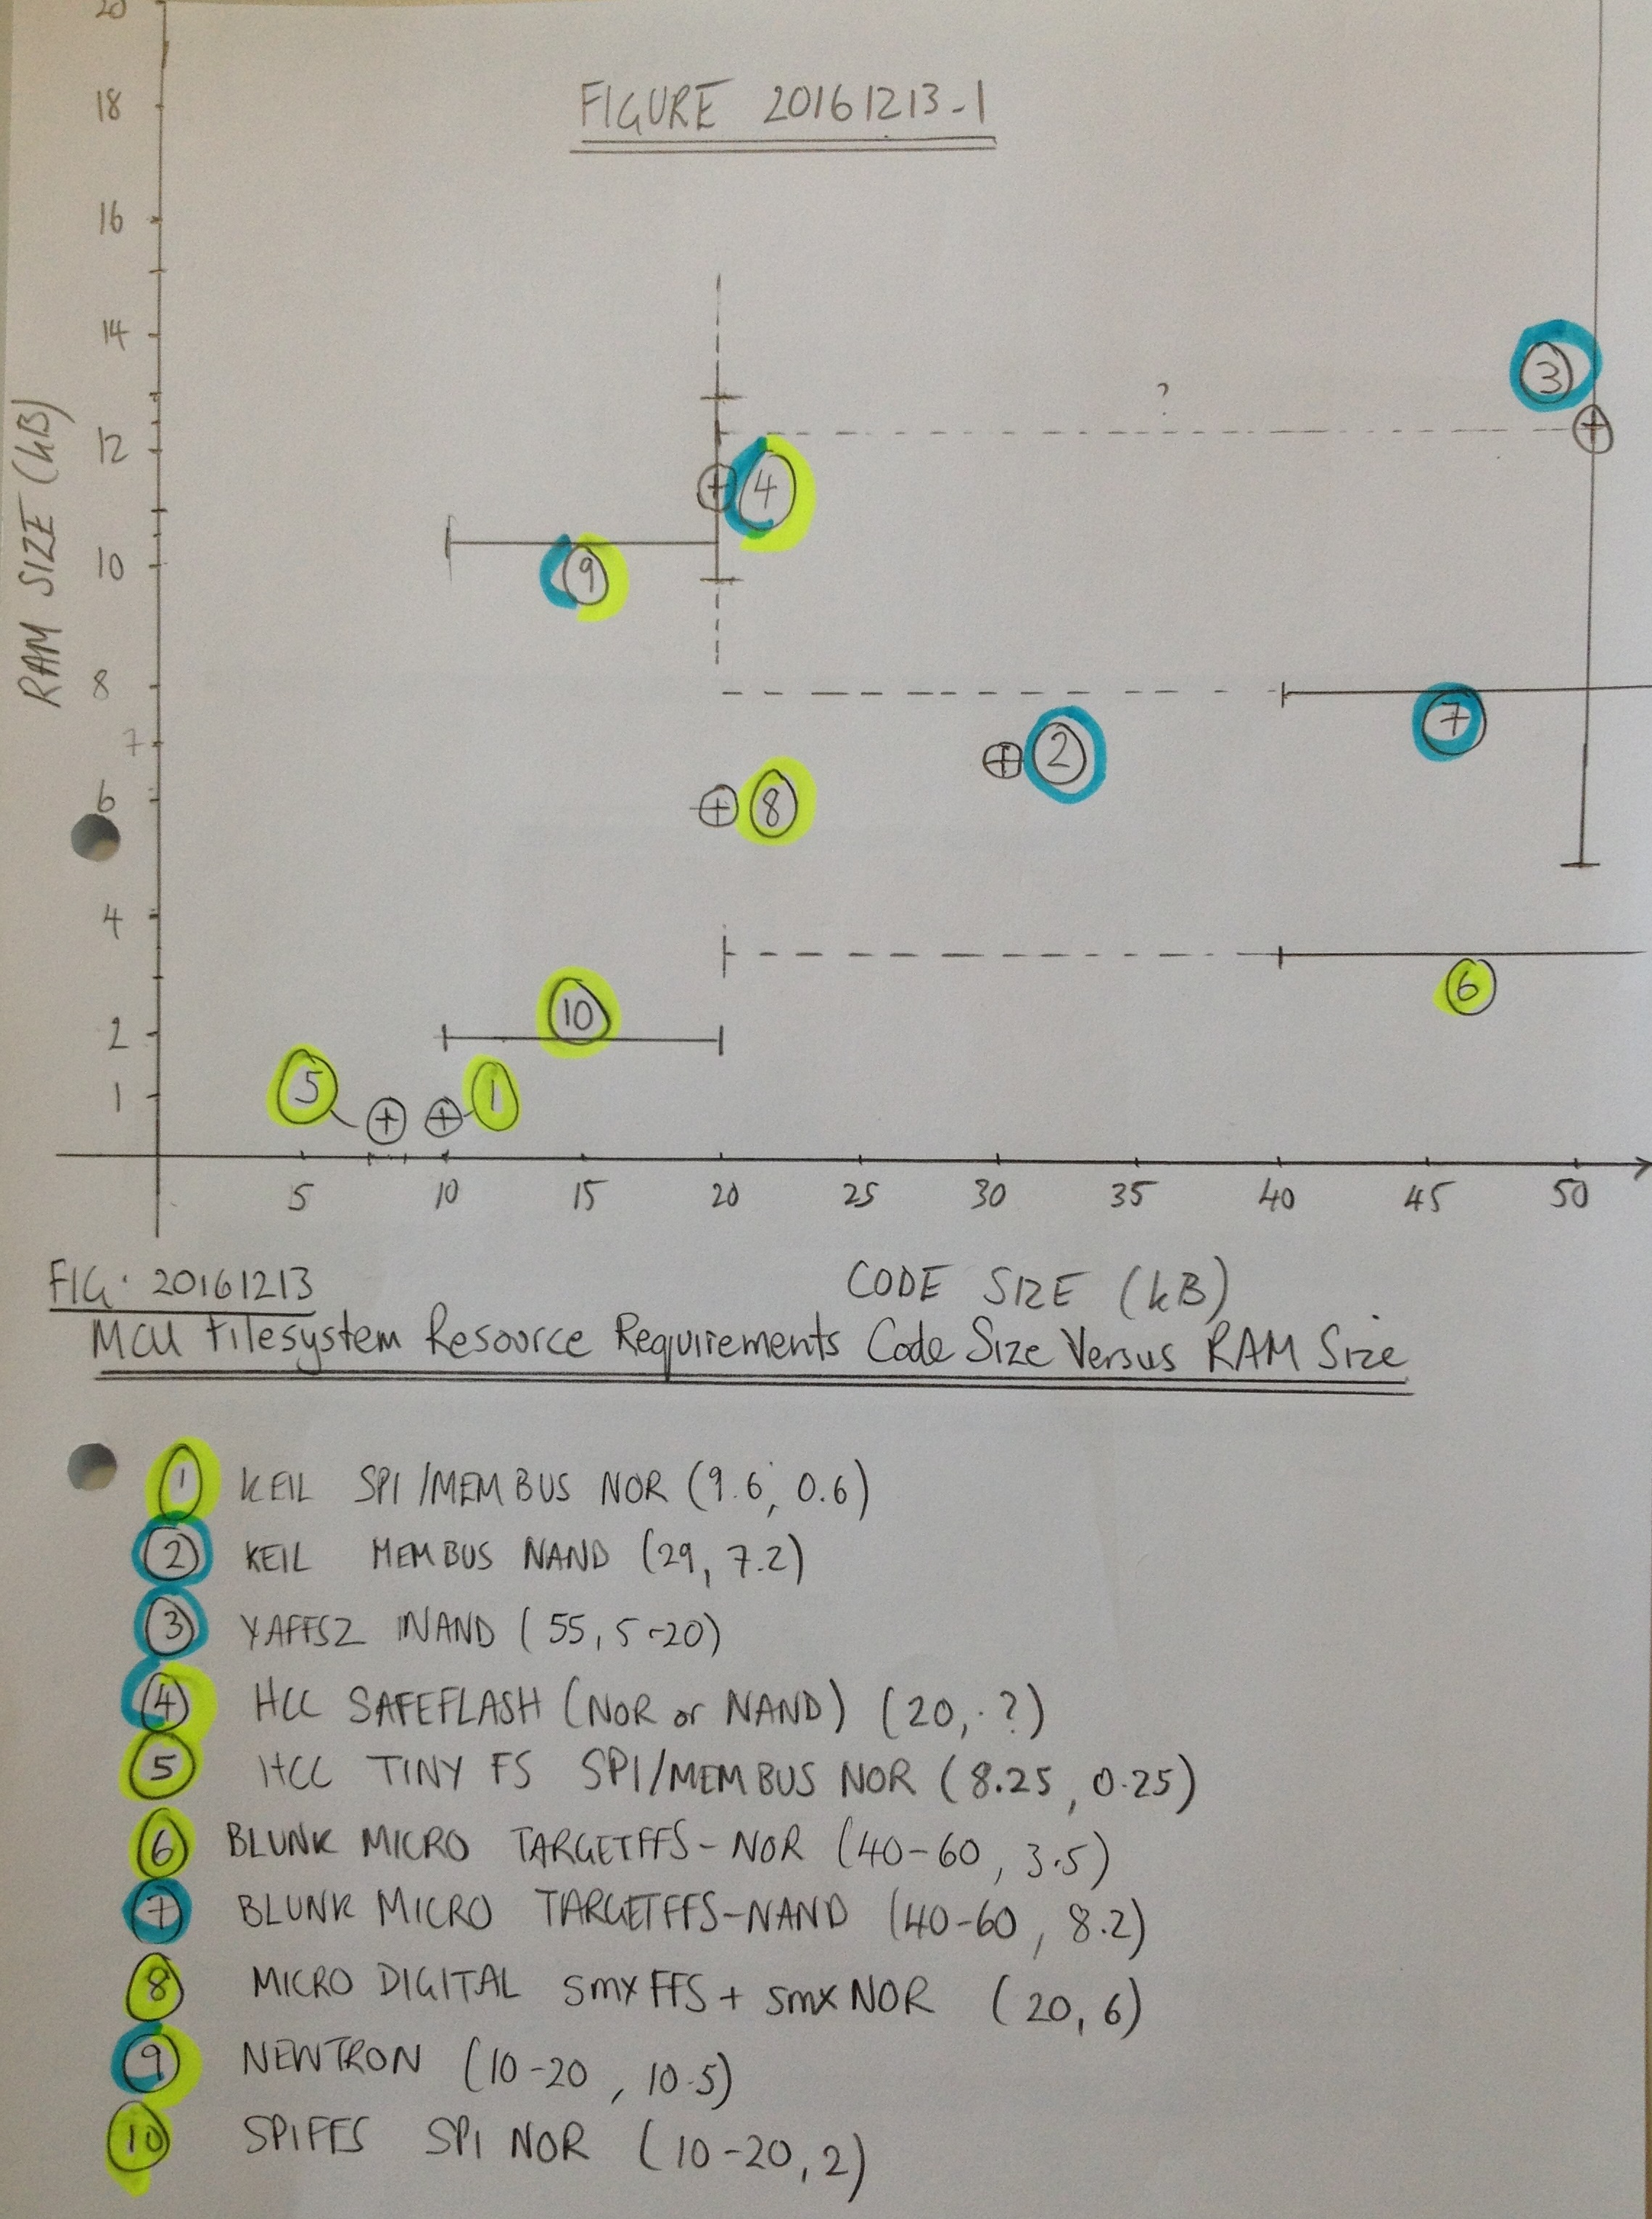 FIGURE 20161213-1
RAM SIZE (kB)
20
18
16
14
12
10
8
7
6
4
2
1
?
3
4
9
7
2
8
6
10
5
1
5 10 15 20 25 30 35 40 45 50
CODE SIZE (kB)
FIG. 20161213
MCU Filesystem Resource Requirements Code Size Versus RAM Size
1 KEIL SPI/MEMBUS NOR (9.6, 0.6)
2 KEIL MEMBUS NAND (29, 7.2)
3 YAFFS2 NAND (55, 5-20)
4 HCC SAFEFLASH (NOR or NAND) (20, ?)
5 HCC TINY FS SPI/MEMBUS NOR (8.25, 0.25)
6 BLUNK MICRO TARGETFFS-NOR (40-60, 3.5)
7 BLUNK MICRO TARGETFFS-NAND (40-60, 8.2)
8 MICRO DIGITAL smxFFS + smxNOR (20, 6)
9 NEWTRON (10-20, 10.5)
10 SPIFFS SPI NOR (10-20, 2)